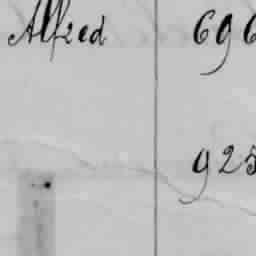 Alfred 696
925